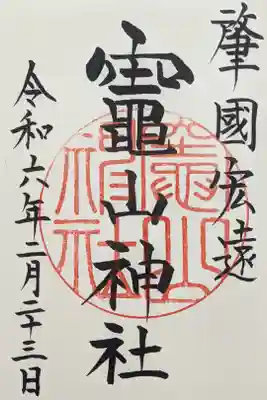 肇國宏遠
竈山神社
令和六年二月二十三日
竈山神社